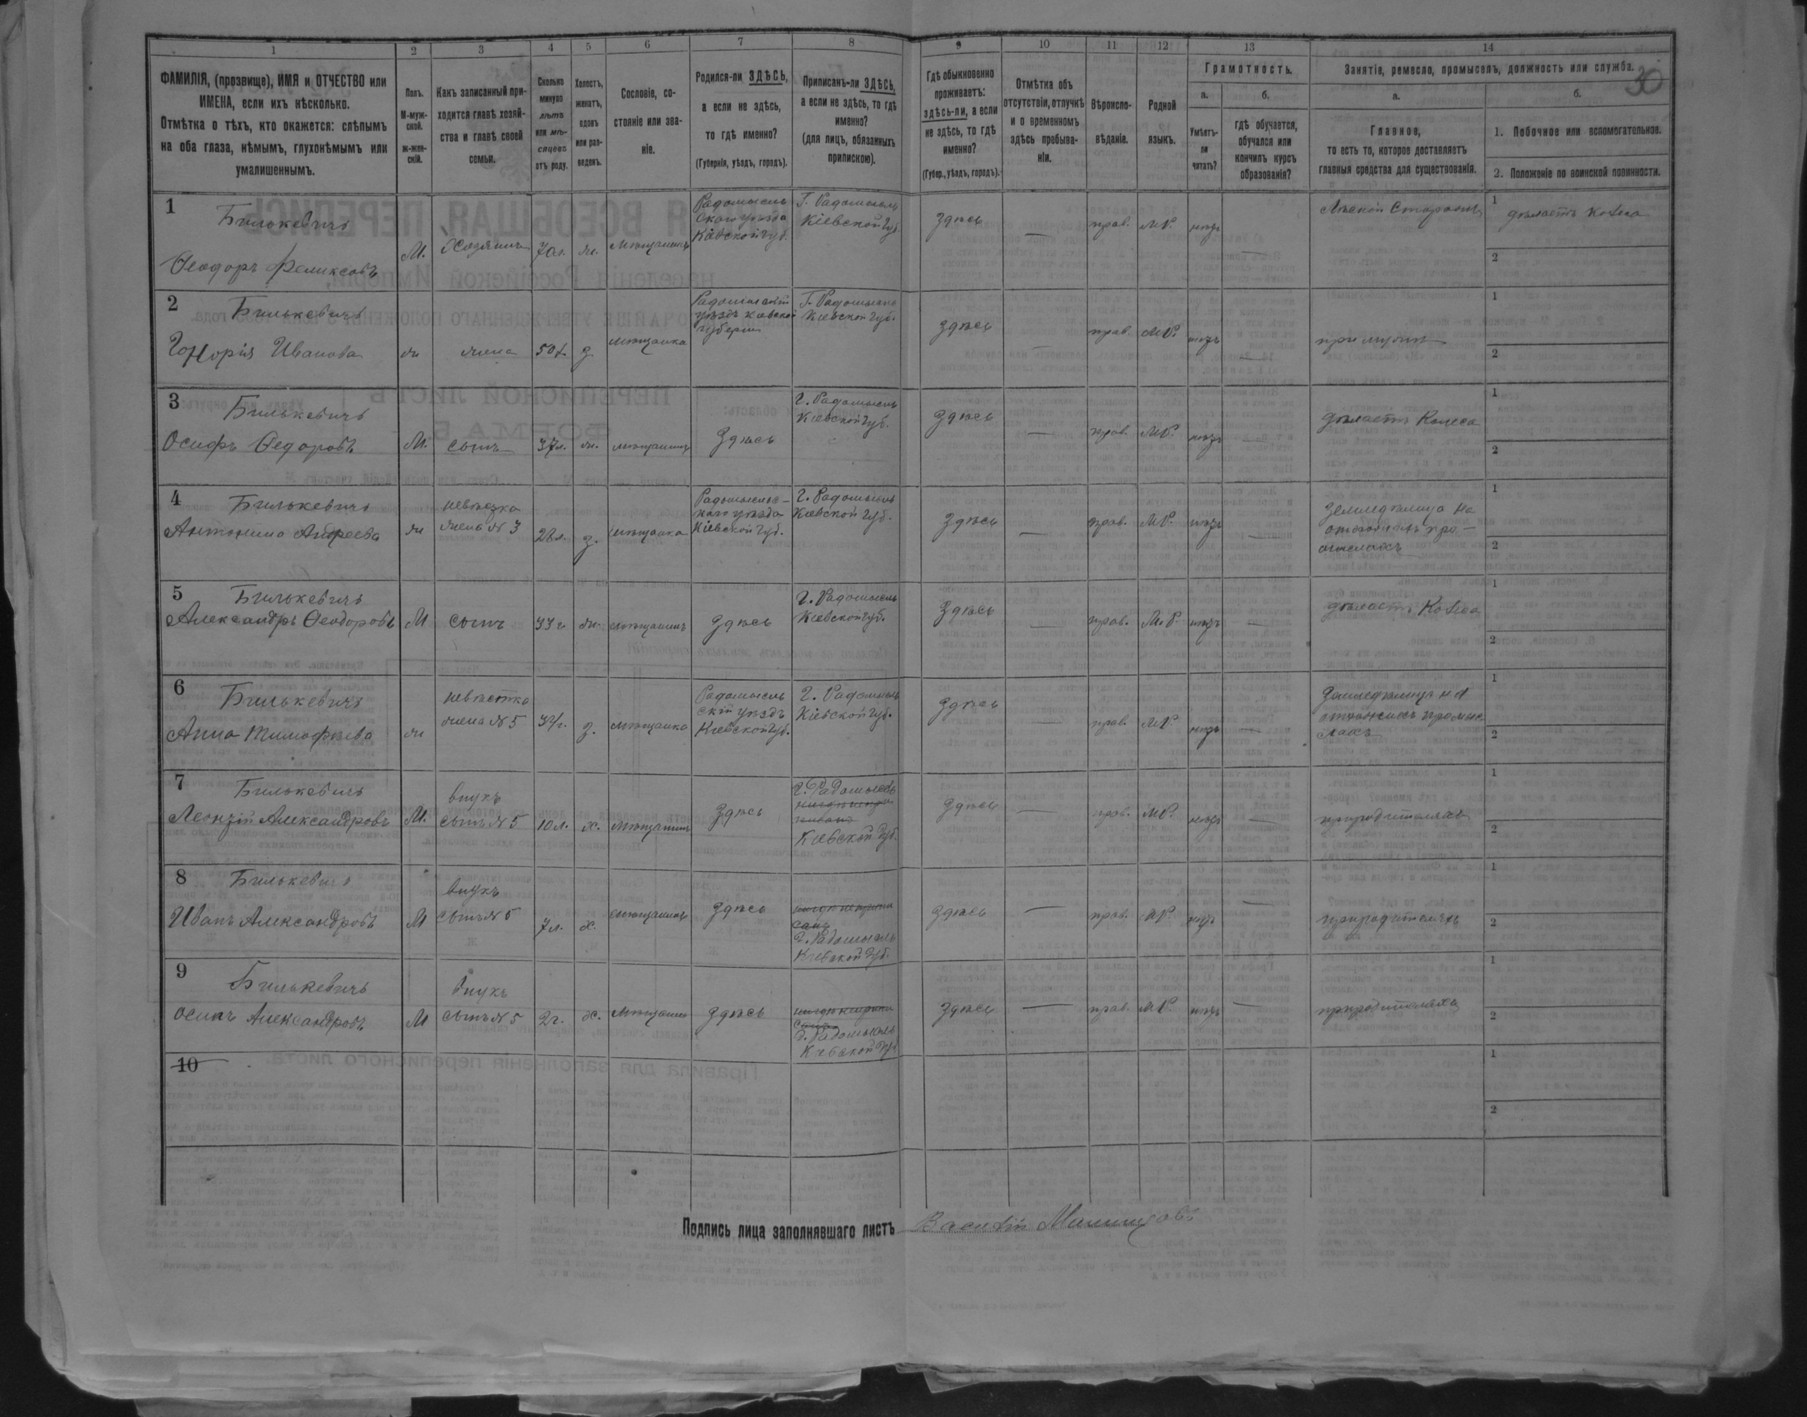 1 2 3 4 5 6 7 8 9 10 11 12 13 14
30
ФАМИЛІЯ, (прозвище), ИМЯ и ОТЧЕСТВО или
ИМЕНА, если ихъ нѣсколько.
Отмѣтка о тѣхъ, кто окажется: слѣпымъ
на оба глаза, нѣмымъ, глухонѣмымъ или
умалишеннымъ.
Полъ.
М-муж-
ской.
ж-жен-
скій.
Какъ записанный при-
ходится главѣ хозяй-
ства и главѣ своей
семьи.
Сколько
минуло
лѣтъ
или мѣ-
сяцевъ
отъ роду.
Холостъ,
женатъ,
вдовъ
или раз-
веденъ.
Сословіе, со-
стояніе или зва-
ніе.
Родился-ли ЗДѢСЬ,
а если не здѣсь,
то гдѣ именно?
(Губернія, уѣздъ, городъ).
Приписанъ-ли ЗДѢСЬ,
а если не здѣсь, то гдѣ
именно?
(для лицъ, обязанныхъ
припискою).
Гдѣ обыкновенно
проживаетъ:
здѣсь-ли, а если
не здѣсь, то гдѣ
именно?
(Губер., уѣздъ, городъ).
Отмѣтка объ
отсутствіи, отлучкѣ
и о временномъ
здѣсь пребыва-
ніи.
Вѣроиспо-
вѣданіе.
Родной
языкъ.
Грамотность.
а.
Умѣетъ-
ли
читать?
б.
гдѣ обучается,
обучался или
кончилъ курсъ
образованія?
Занятіе, ремесло, промыселъ, должность или служба.
а.
Главное,
то есть то, которое доставляетъ
главныя средства для существованія.
б.
1. Побочное или вспомогательное.
2. Положеніе по воинской повинности.
1 Билькевичъ
Ѳеодоръ Феликсовъ
М.
Хозяинъ
70л.
ж.
мѣщанинъ
Радомысль
скаго уѣзда
Кіевской губ.
Г. Радомысль
Кіевской Губ.
здѣсь
—
прав.
М.Р.
1
дѣлаетъ колеса
2
2 Билькевичъ
Гонорія Иванова
ж
жена
з.
мѣщанка
Г. Радомысль
Кіевской Губ.
здѣсь
—
прав.
М.Р.
—
при мужѣ
1
2
3 Билькевичъ
Осифъ Ѳедоровъ
М.
сынъ
37л.
ж.
мѣщанинъ
Здѣсь
Г. Радомысль
Кіевской Губ.
здѣсь
—
прав.
М.Р.
—
дѣлаетъ Колеса
1
2
4 Билькевичъ
Антонина Андреева
ж
невѣстка
жена №3
28л.
з.
мѣщанка
Кіевской Губ.
Г. Радомысль
Кіевской Губ.
здѣсь
—
прав.
М.Р.
—
1
2
5 Билькевичъ
Александръ Ѳеодоровъ
М
сынъ
33г.
ж.
мѣщанинъ
здѣсь
Г. Радомысль
Кіевской Губ.
здѣсь
—
прав.
М.Р.
—
дѣлаетъ Колеса
1
2
6 Билькевичъ
Анна Тимофѣева
ж
невѣстка
жена №5
з.
мѣщанка
Радомысль
скій уѣздъ
Кіевской Губ.
Г. Радомысль
Кіевской Губ.
здѣсь
—
прав.
М.Р.
—
1
2
7 Билькевичъ
Леонтій Александровъ
М.
внукъ
сынъ №5
10л.
х.
мѣщанинъ
здѣсь
Г. Радомысль
Кіевской Губ.
здѣсь
—
прав.
М.Р.
—
при родителяхъ
1
2
8 Билькевичъ
Иванъ Александровъ
М
внукъ
сынъ №5
7л.
х.
мѣщанинъ
здѣсь
Г. Радомысль
Кіевской Губ.
здѣсь
—
прав.
М.Р.
—
при родителяхъ
1
2
9 Билькевичъ
Осипъ Александровъ
М
внукъ
сынъ №5
2г.
х.
мѣщанинъ
здѣсь
Г. Радомысль
Кіевской Губ.
здѣсь
—
прав.
М.Р.
—
при родителяхъ
1
2
10
1
2
Подпись лица заполнявшаго листъ Василій